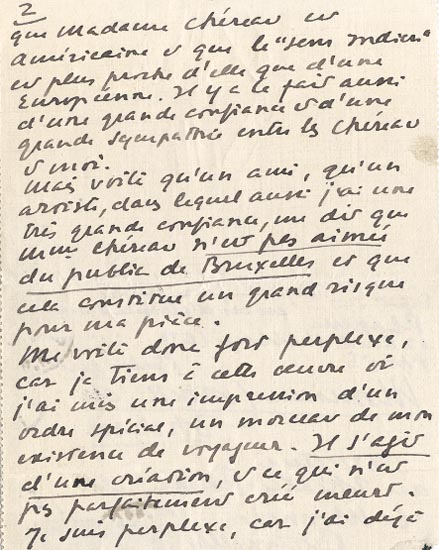 2
que madame Chéreau est
américaine & que le "sens indien"
est plus proche d'elle que d'une
Européenne. Il y a le fait aussi
d'une grande confiance & d'une
grande sympathie entre les Chéreau
& moi.
Mais voilà qu'un ami, qu'un
artiste, dans lequel aussi j'ai une
très grande confiance, me dit que
Mme Chéreau n'est pas aimée
du public de Bruxelles et que
cela constitue un grand risque
pour ma pièce.
Me voilà donc fort perplexe,
car je tiens à cette œuvre où
j'ai mis une impression d'un
ordre spécial, un morceau de mon
existence de voyageur. Il s'agit
d'une création, & ce qui n'est
pas parfaitement créé meurt.
Je suis perplexe, car j'ai déjà